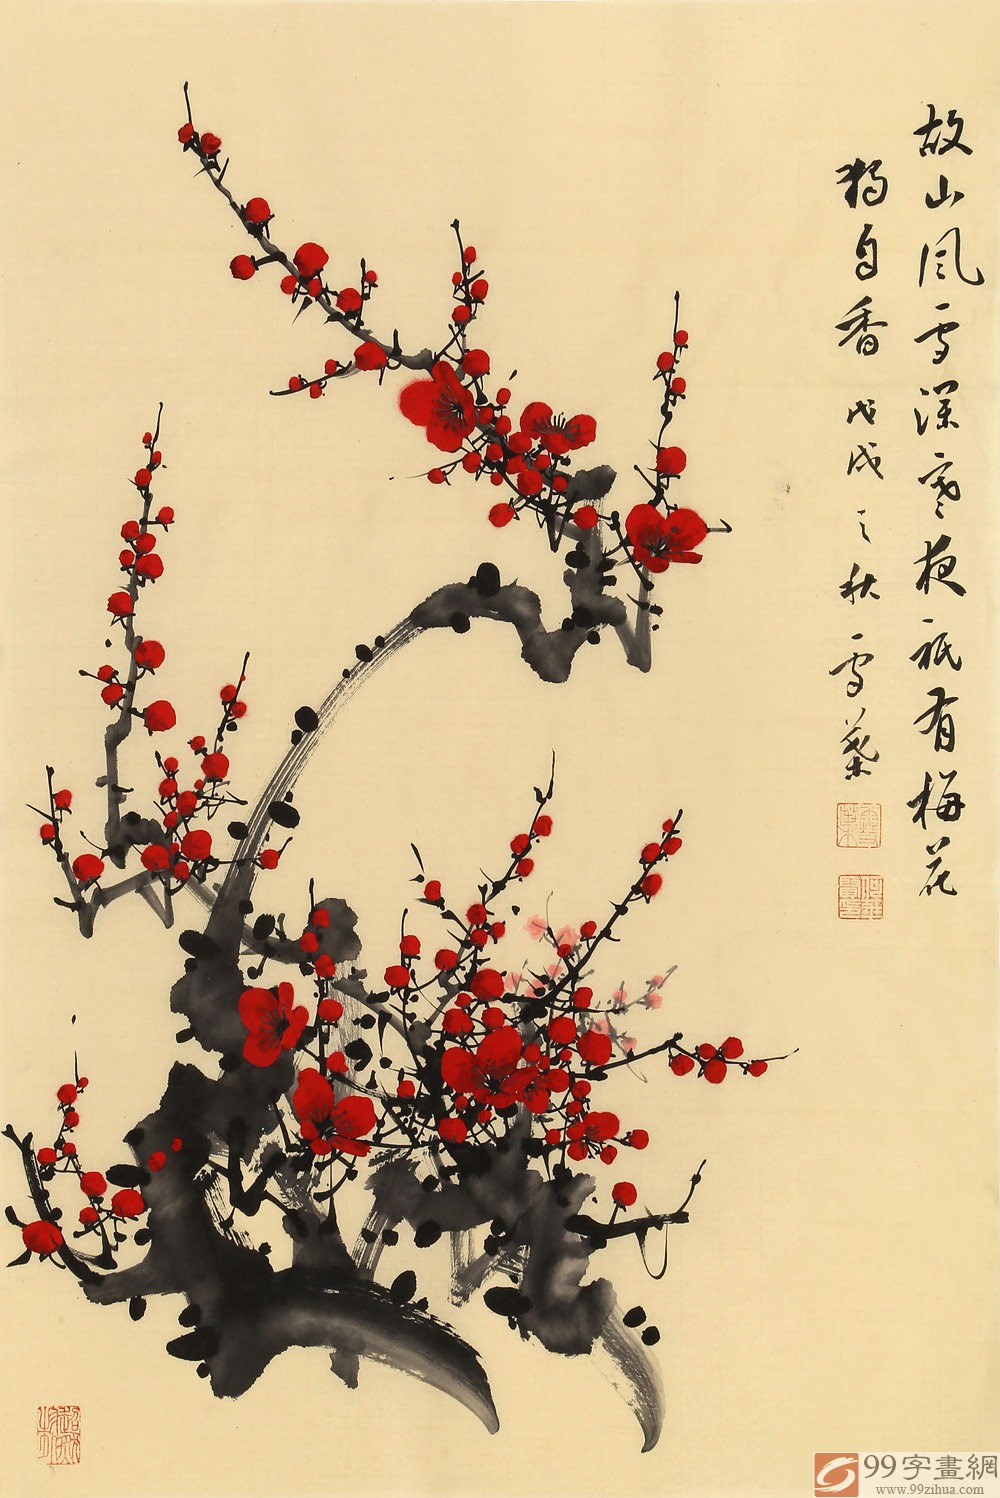 故山風雪深寒夜祇有梅花
獨自香 戊戌之秋 雪葉
99字畫網
www.99zihua.com